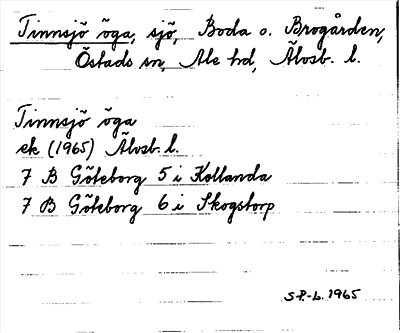 Tinnsjö öga, sjö, Boda o. Brogården,
Östads sn, Ale hd, Älvsb. l.
Tinnsjö öga
ek (1965) Älvsb. l.
7 B Göteborg 5 i Kollanda
7 B Göteborg 6 i Skogstorp
S.P.-L. 1965